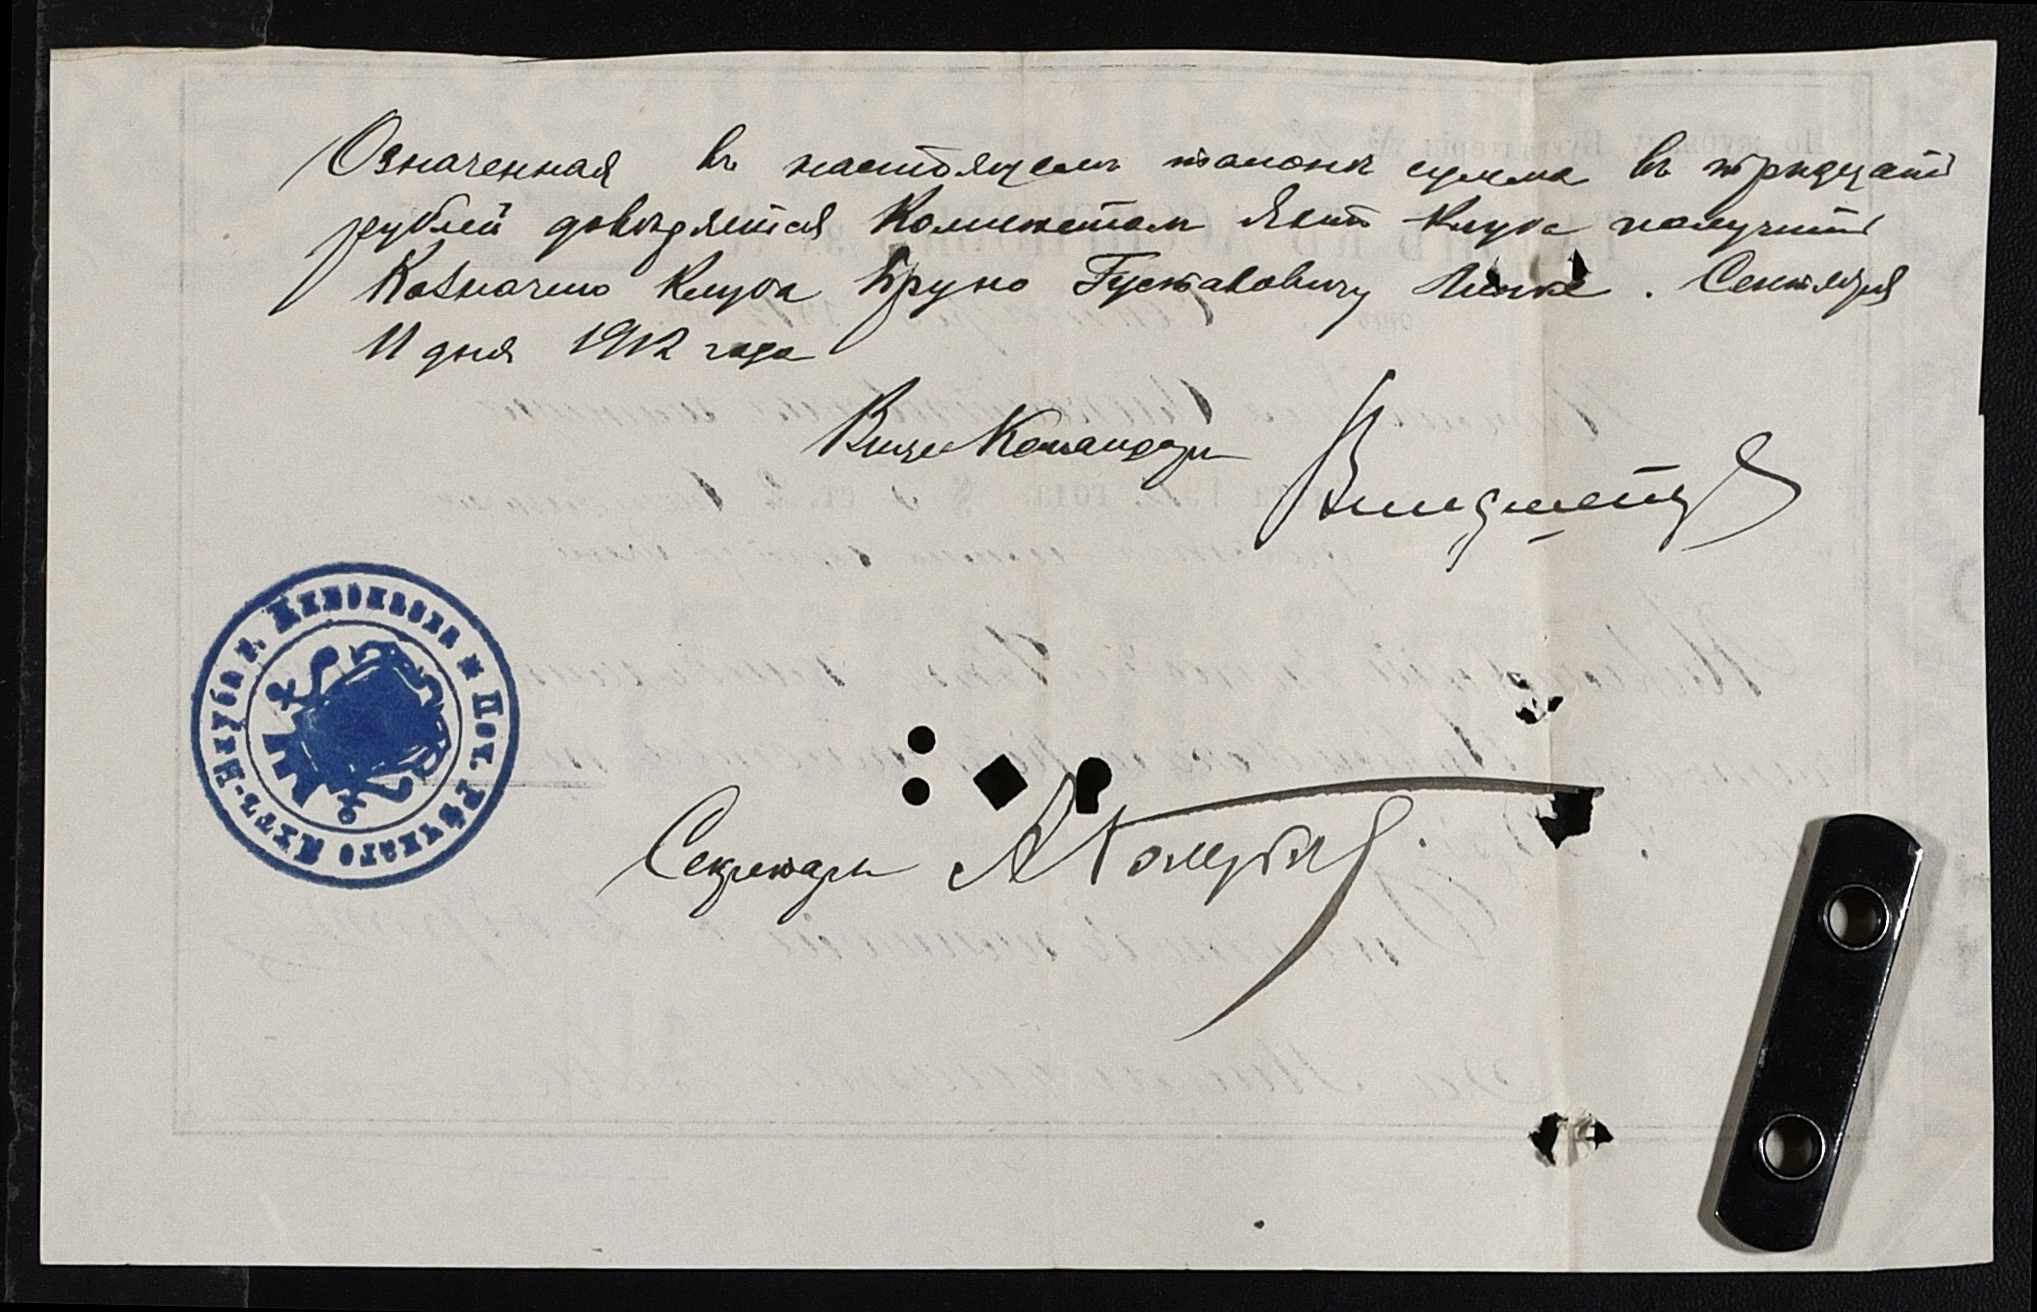 Означенная въ настоящемъ талонѣ сумма въ тридцать
рублей довѣряется Комитетомъ Яхтъ Клуба получить
Казначею Клуба Бруно Густавовичу Линке. Сентября
11 дня 1912 года
Вице Командоръ
Секретарь
Яхтъ-Клуба
Рѣчнаго